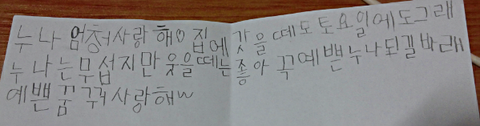 누나 엄청사랑해o 집에 갓을 떼도토요일에도그래
누나는무섭지만웃을떼는 좋아 꼭예쁜누나되길바래
예쁜꿈꿔사랑해~